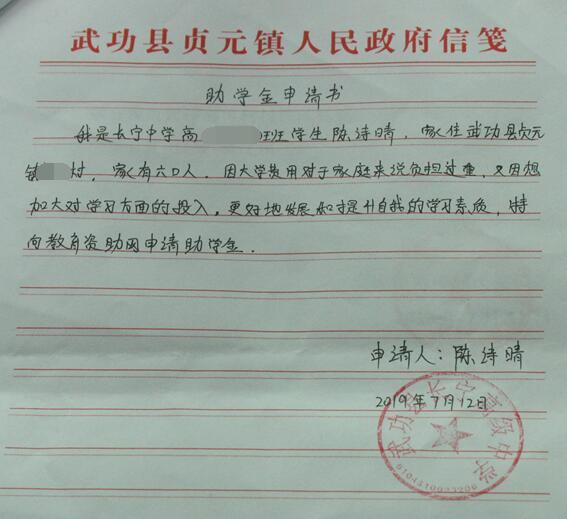 武功县贞元镇人民政府信笺
助学金申请书
我是长宁中学高 班学生陈诗晴，家住武功县贞元
镇 村，家有六口人。因大学费用对于家庭来说负担过重，又因想
加大对学习方面的投入，更好地发展和提升自我的学习素质，特
向教育资助网申请助学金.
申请人：陈诗晴
2019年7月12日
武功县长宁高级中学